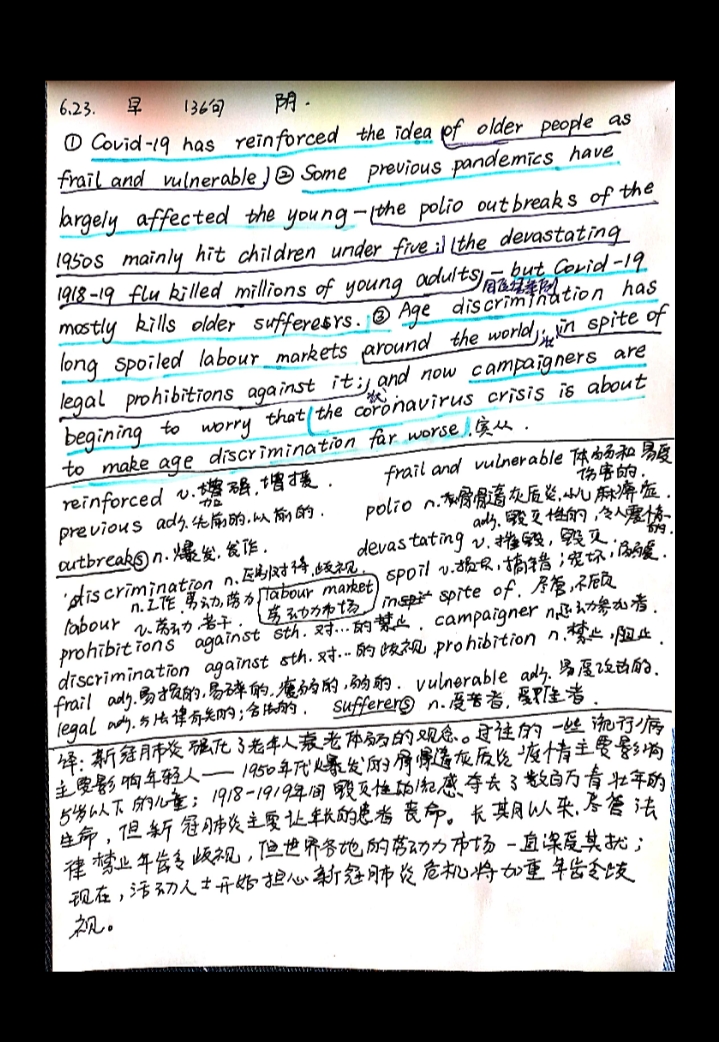 6.23. 早 136句 阴.
① Covid-19 has reinforced the idea (of older people as
frail and vulnerable.) ② Some previous pandemics have
largely affected the young – (the polio outbreaks of the
1950s mainly hit children under five;) (the devastating
1918-19 flu killed millions of young adults) – but Covid-19
mostly kills older sufferers. ③ Age discrimination has
long spoiled labour markets (around the world), (in spite of
legal prohibitions against it;) and now campaigners are
begining to worry that (the coronavirus crisis is about
to make age discrimination far worse). 宾从.
reinforced v. 增强, 增援. frail and vulnerable 体弱和易受伤害的.
previous adj. 先前的, 以前的. polio n. 脊髓灰质炎, 小儿麻痹症.
outbreaks n. 爆发, 发作. devastating adj. 毁灭性的, 令人震惊的. v. 摧毁, 毁灭.
discrimination n. 区别对待, 歧视. spoil v. 损坏, 搞错; 宠坏, 溺爱.
labour n. 工作, 劳动, 劳力 v. 劳动, 苦干. labour market 劳动力市场 in spite of. 尽管, 不顾
prohibitions against sth. 对…的禁止. campaigner n. 运动参加者.
discrimination against sth. 对…的歧视 prohibition n. 禁止, 阻止.
frail adj. 易损的, 易碎的, 瘦弱的, 弱的. vulnerable adj. 易受攻击的.
legal adj. 与法律有关的; 合法的. sufferers n. 受害者, 受罪者.
译: 新冠肺炎强化了老年人衰老体弱的观念。过往的一些流行病
主要影响年轻人——1950年代爆发的脊髓灰质炎疫情主要影响
5岁以下的儿童; 1918-1919年间毁灭性的流感夺去了数百万青壮年的
生命, 但新冠肺炎主要让年长的患者丧命。长期以来, 尽管法
律禁止年龄歧视, 但世界各地的劳动力市场一直深受其扰;
现在, 活动人士开始担心新冠肺炎危机将加重年龄歧
视。